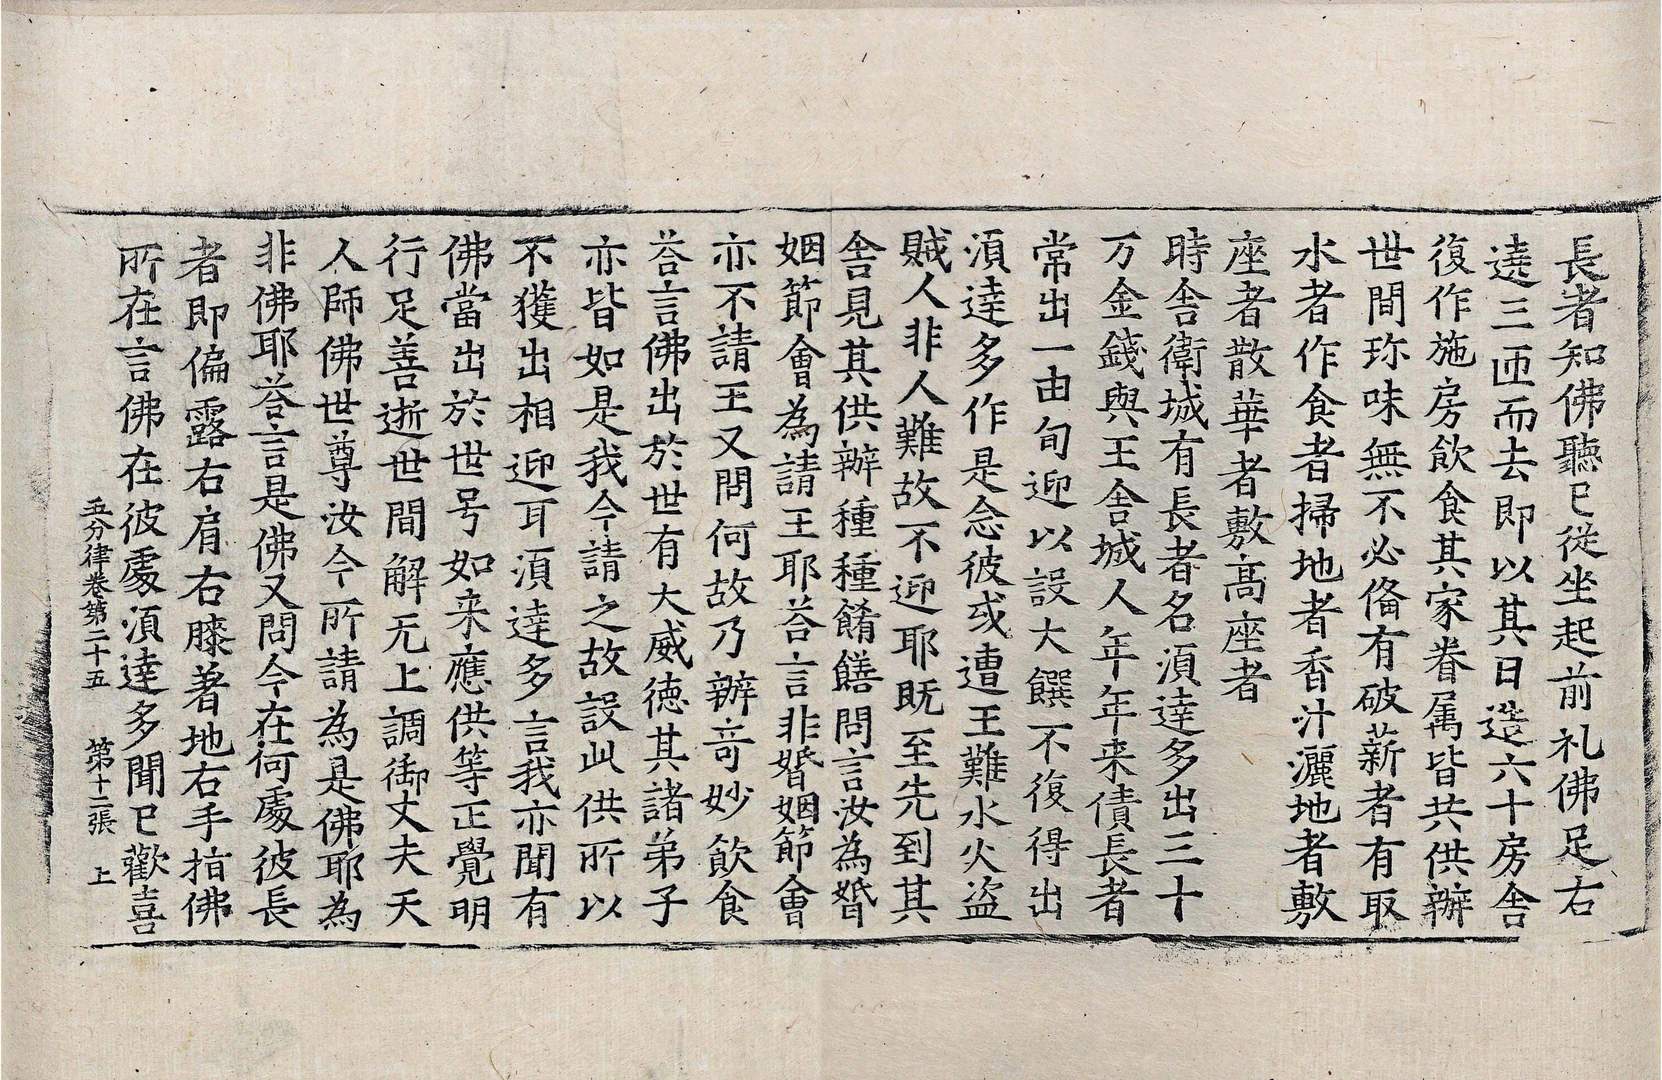 長者知佛聽已從坐起前礼佛足右
遶三匝而去即以其日造六十房舍
復作施房飲食其家眷属皆共供辦
世間珎味無不必俻有破薪者有取
水者作食者掃地者香汁灑地者敷
座者散華者敷髙座者
時舍衛城有長者名湏達多出三十
万金錢與王舍城人年年来債長者
常出一由旬迎以設大饌不復得出
湏達多作是念彼或遭王難水火盗
賊人非人難故不迎耶既至先到其
舍見其供辦種種餚饍問言汝為婚
姻節會為請王耶荅言非婚姻節會
亦不請王又問何故乃辦竒妙飲食
荅言佛出於世有大威德其諸弟子
亦皆如是我今請之故設此供所以
不獲出相迎耳湏達多言我亦聞有
佛當出於世号如来應供等正覺明
行足善逝世間解无上調御丈夫天
人師佛世尊汝今所請為是佛耶為
非佛耶荅言是佛又問今在何處彼長
者即偏露右肩右膝著地右手指佛
所在言佛在彼處湏達多聞已歡喜
五分律卷第二十五 第十二張 上